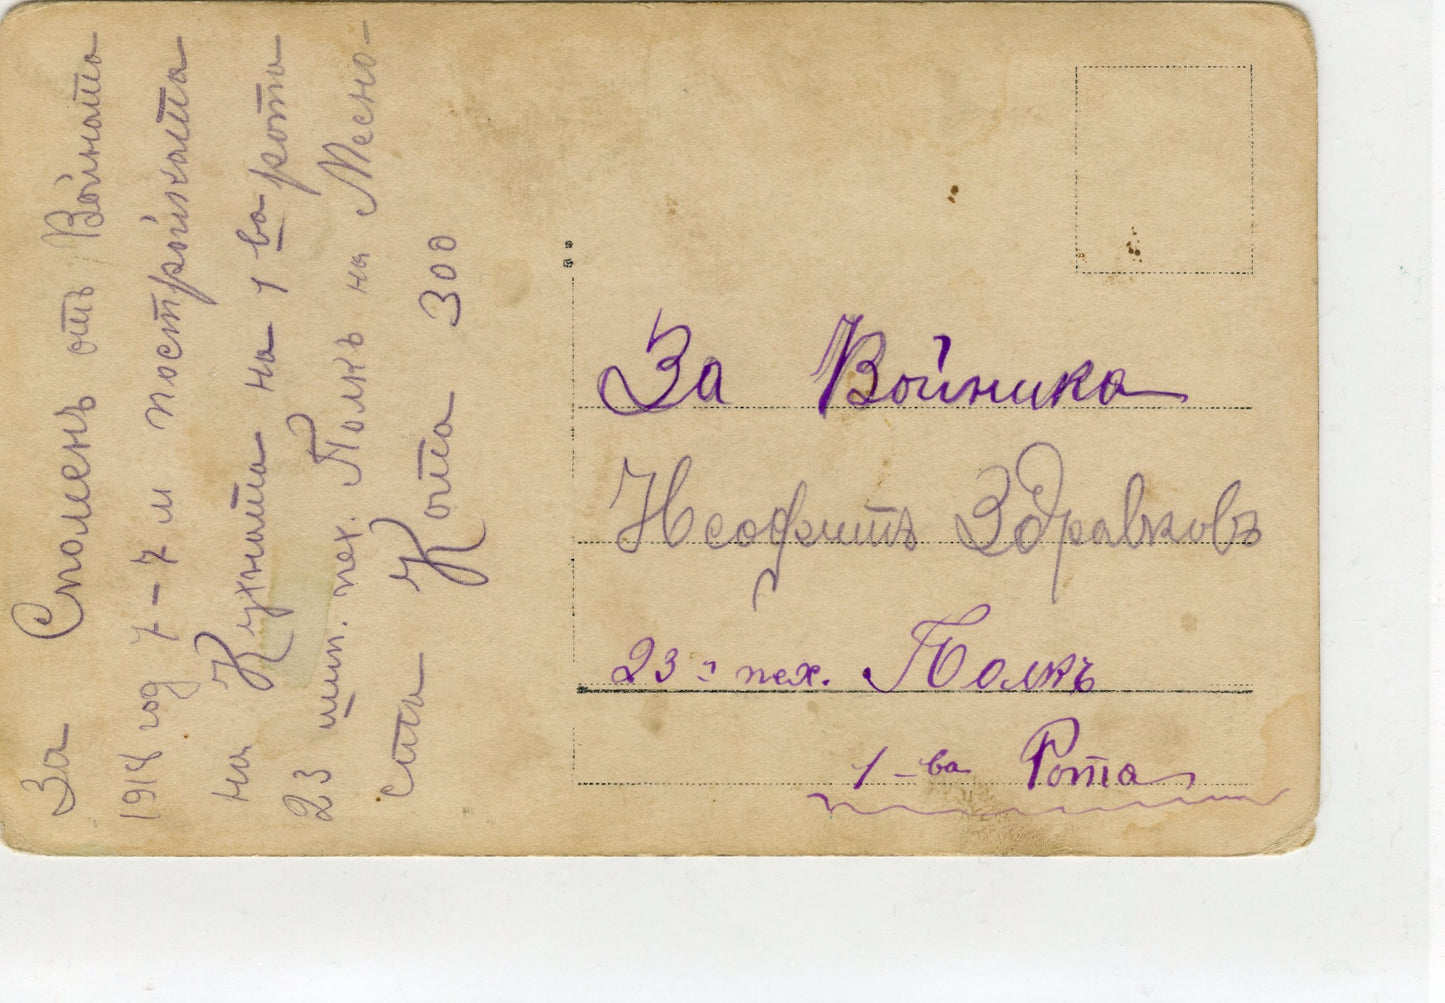 За Споменъ отъ Войната
1918 год 7-7м постройката
на Кухната на 1ва рота
23 шип. пех. Полкъ на Месно-
ста Кота 300
За Войника
Неофитъ Здравковъ
23й пех. Полкъ
1-ва Рота